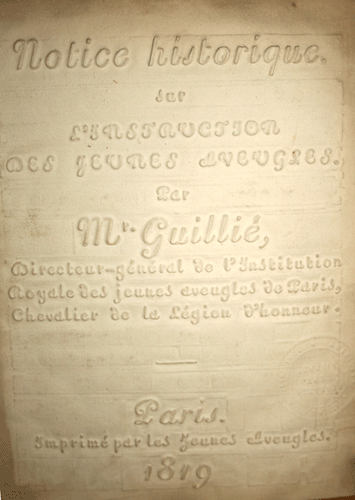 Notice historique.
sur
L'INSTRUCTION
DES JEUNES AVEUGLES.
Par
Mr. Guillié,
Directeur-général de l'Institution
Royale des jeunes aveugles de Paris,
Chevalier de la Légion d'honneur.
Paris.
Imprimé par les Jeunes Aveugles.
1819